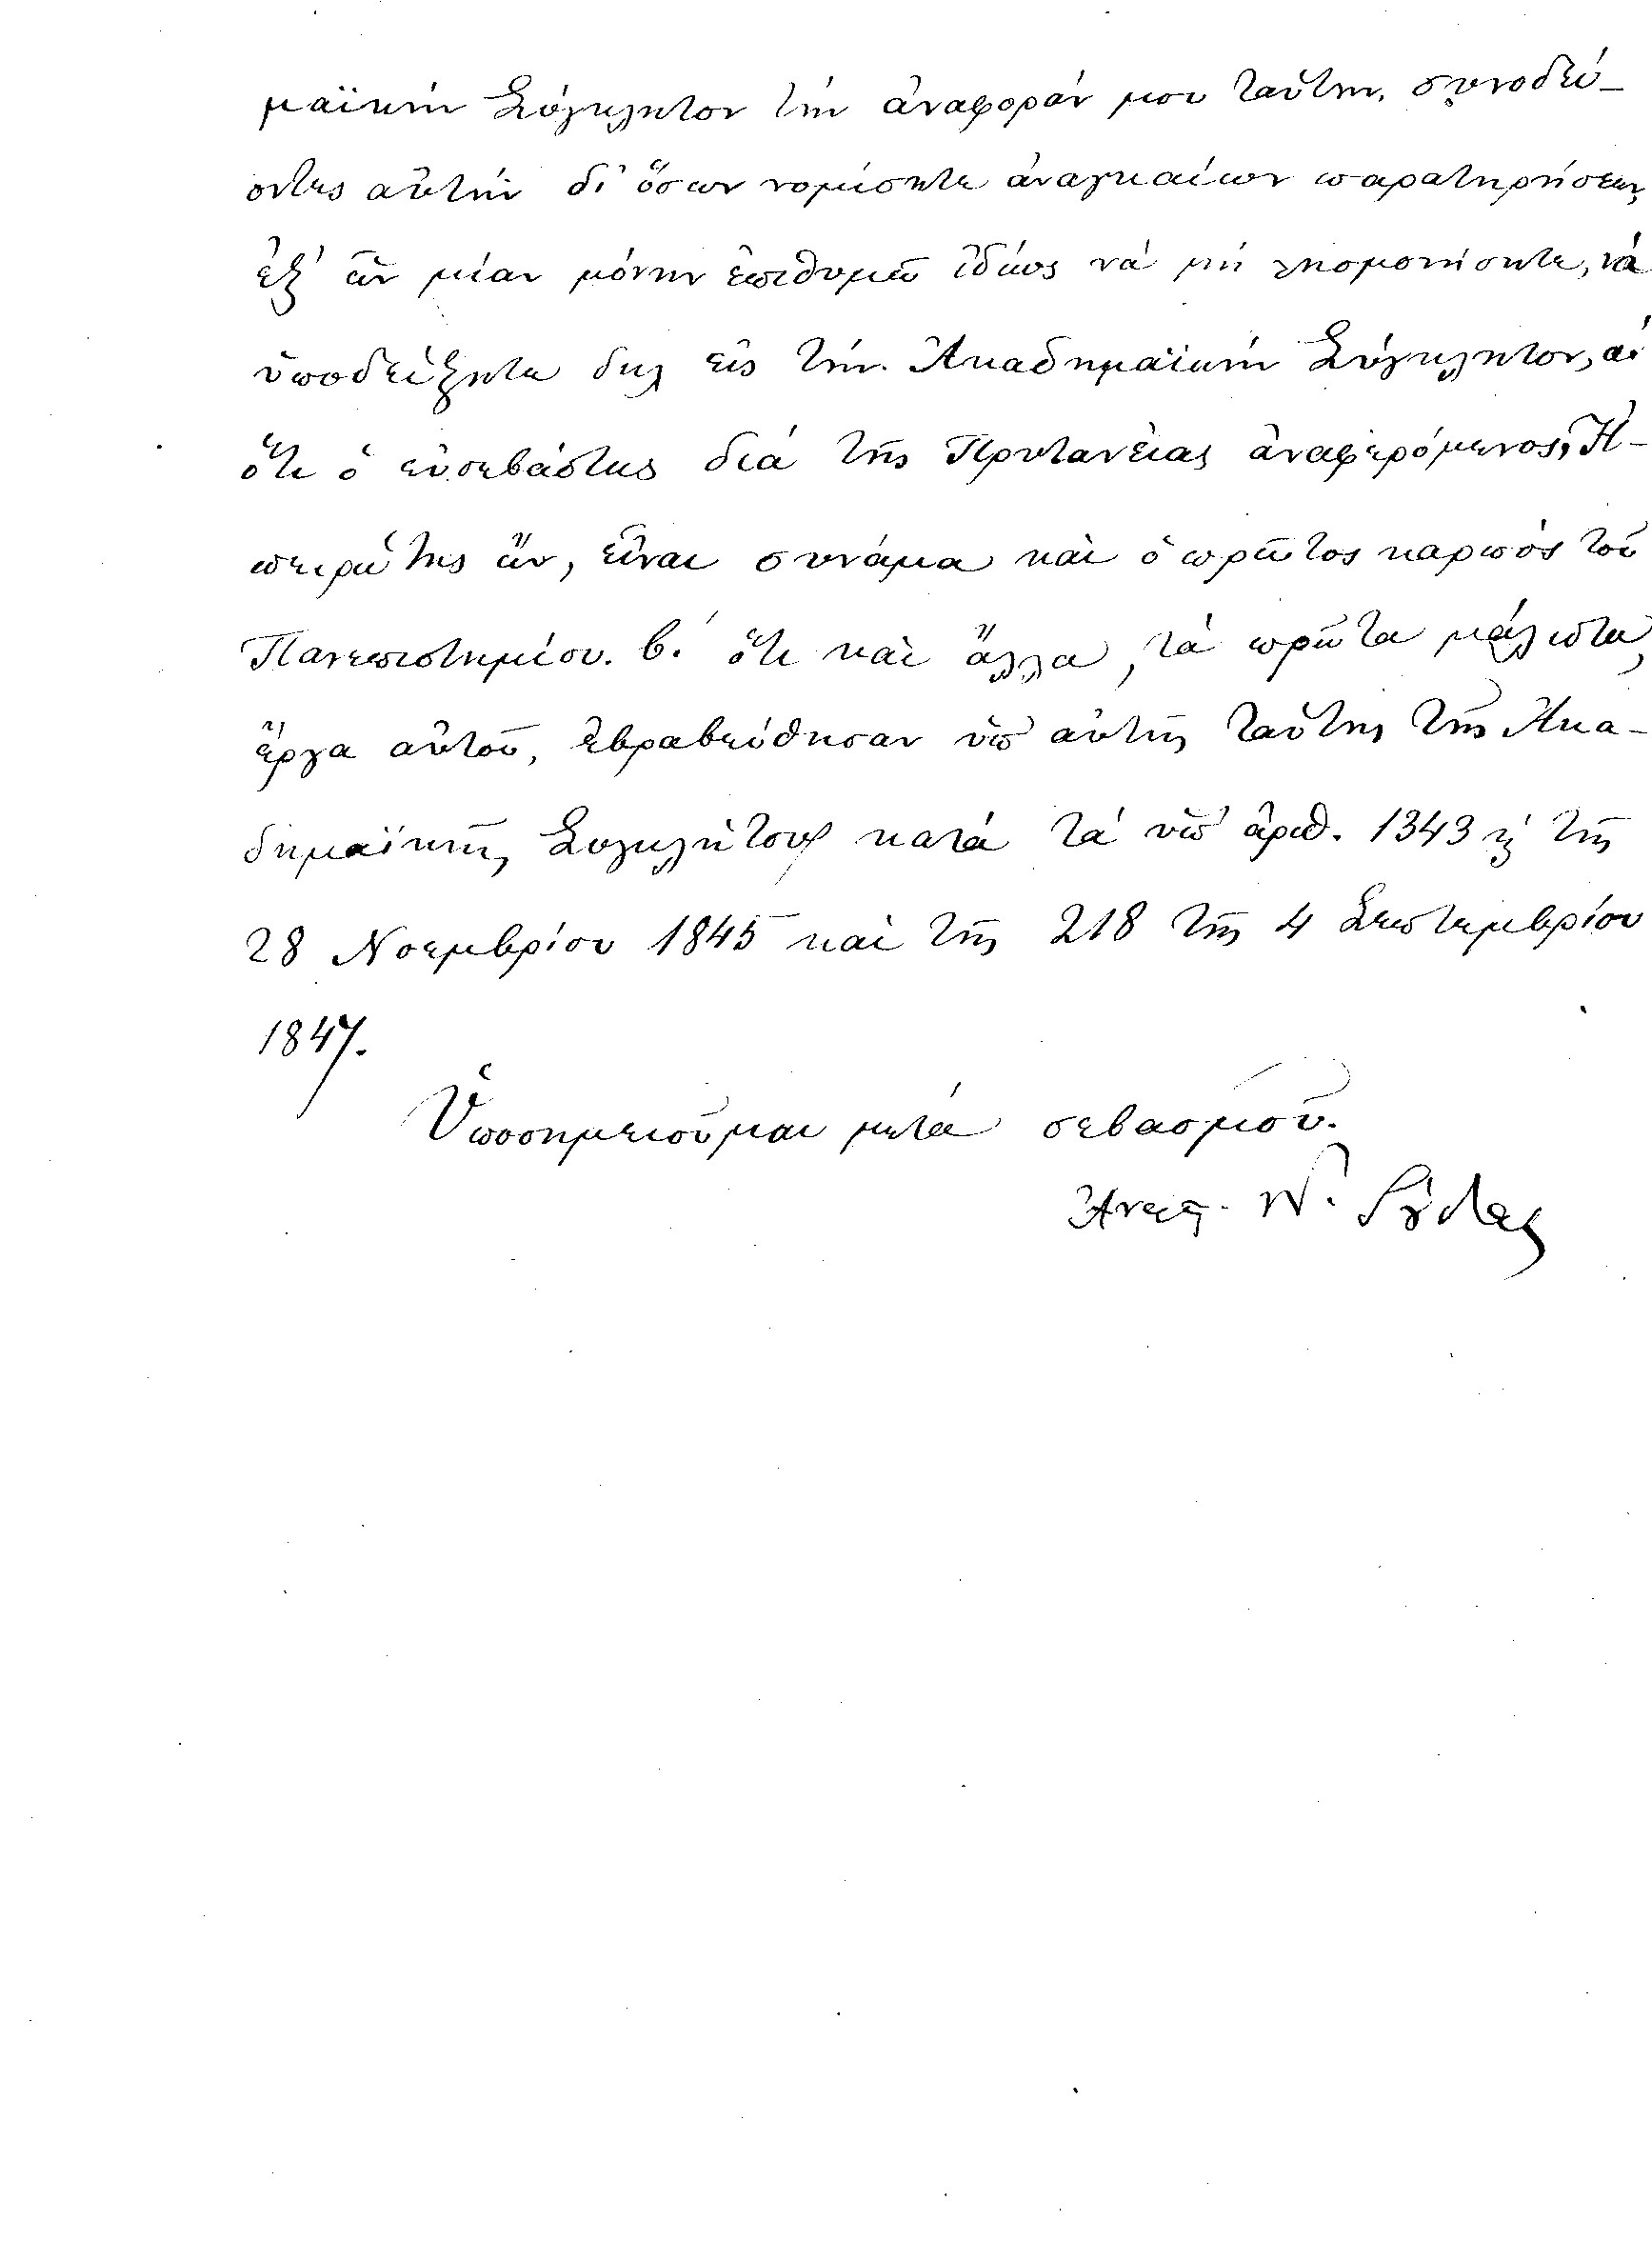 μαϊκὴν Σύγκλητον τὴν ἀναφοράν μου ταύτην, συνοδεύ-
οντες αὐτὴν δι' ὅσων νομίσητε ἀναγκαίων παρατηρήσεων,
ἐξ ὧν μίαν μόνην ἐπιθυμῶ ἰδίως νὰ μὴ λησμονήσητε, νὰ
ὑποδείξητε δηλ εἰς τὴν Ἀκαδημαϊκὴν Σύγκλητον, α'
ὅτι ὁ εὐσεβάστως διὰ τῆς Πρυτανείας ἀναφερόμενος, Ἠ-
πειρώτης ὤν, εἶναι συνάμα καὶ ὁ πρῶτος καρπὸς τοῦ
Πανεπιστημίου. β.' ὅτι καὶ ἄλλα, τὰ πρῶτα μάλιστα,
ἔργα αὐτοῦ, ἐβραβεύθησαν ὑπ' αὐτῆς ταύτης τῆς Ἀκα-
δημαϊκῆς Συγκλήτου κατὰ τὰ ὑπ' ἀριθ. 1343 τῆς
28 Νοεμβρίου 1845 καὶ τῆς 218 τῆς 4 Σεπτεμβρίου
1847.
Ὑποσημειοῦμαι μετὰ σεβασμοῦ.
Ἀναστ. Ν. Γούδας